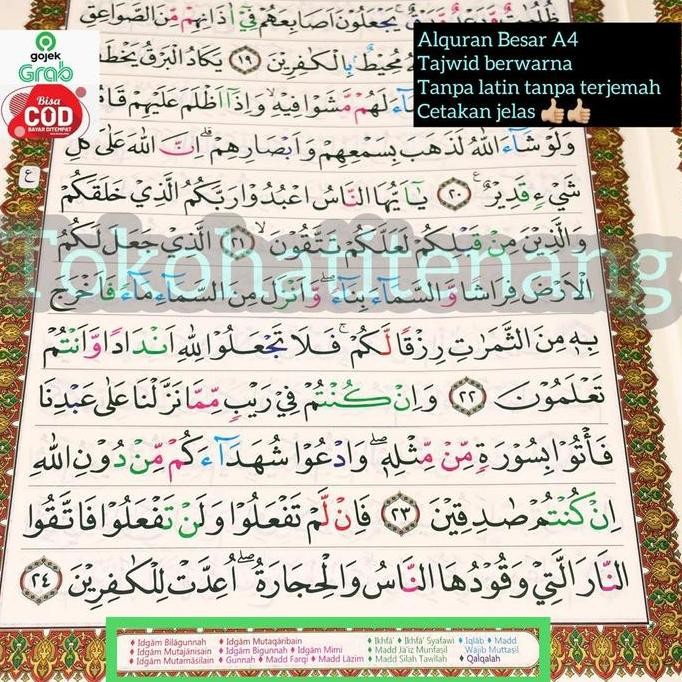 ظُلُمٰتٌ وَّرَعْدٌ وَّبَرْقٌۚ يَجْعَلُوْنَ اَصَابِعَهُمْ فِيْٓ اٰذَانِهِمْ مِّنَ الصَّوَاعِقِ
مُحِيْطٌۢ بِالْكٰفِرِيْنَ ١٩ يَكَادُ الْبَرْقُ يَخْطَفُ
لَهُمْ مَّشَوْا فِيْهِۙ وَاِذَآ اَظْلَمَ عَلَيْهِمْ قَامُوْاۗ
وَلَوْ شَاۤءَ اللّٰهُ لَذَهَبَ بِسَمْعِهِمْ وَاَبْصَارِهِمْۗ اِنَّ اللّٰهَ عَلٰى كُلِّ
شَيْءٍ قَدِيْرٌ ࣖ ٢٠ يٰٓاَيُّهَا النَّاسُ اعْبُدُوْا رَبَّكُمُ الَّذِيْ خَلَقَكُمْ
وَالَّذِيْنَ مِنْ قَبْلِكُمْ لَعَلَّكُمْ تَتَّقُوْنَۙ ٢١ الَّذِيْ جَعَلَ لَكُمُ
الْاَرْضَ فِرَاشًا وَّالسَّمَاۤءَ بِنَاۤءًۖ وَّاَنْزَلَ مِنَ السَّمَاۤءِ مَاۤءً فَاَخْرَجَ
بِهٖ مِنَ الثَّمَرٰتِ رِزْقًا لَّكُمْۚ فَلَا تَجْعَلُوْا لِلّٰهِ اَنْدَادًا وَّاَنْتُمْ
تَعْلَمُوْنَ ٢٢ وَاِنْ كُنْتُمْ فِيْ رَيْبٍ مِّمَّا نَزَّلْنَا عَلٰى عَبْدِنَا
فَأْتُوْا بِسُوْرَةٍ مِّنْ مِّثْلِهٖۖ وَادْعُوْا شُهَدَاۤءَكُمْ مِّنْ دُوْنِ اللّٰهِ
اِنْ كُنْتُمْ صٰدِقِيْنَ ٢٣ فَاِنْ لَّمْ تَفْعَلُوْا وَلَنْ تَفْعَلُوْا فَاتَّقُوا
النَّارَ الَّتِيْ وَقُوْدُهَا النَّاسُ وَالْحِجَارَةُۖ اُعِدَّتْ لِلْكٰفِرِيْنَ ٢٤
ع
gojek
Grab
Bisa
COD
BAYAR DITEMPAT
Alquran Besar A4
Tajwid berwarna
Tanpa latin tanpa terjemah
Cetakan jelas 👍🏼👍🏼
Tokohatitenang
Idgām Bilāgunnah Idgām Mutaqāribain Ikhfā' Ikhfā' Syafawi Iqlāb Madd
Idgām Mutajānisain Idgām Bigunnah Idgām Mimi Madd Jā'iz Munfaṣil Wājib Muttaṣil
Idgām Mutamāṡilain Gunnah Madd Farqi Madd Lāzim Madd Ṣilah Ṭawīlah Qalqalah